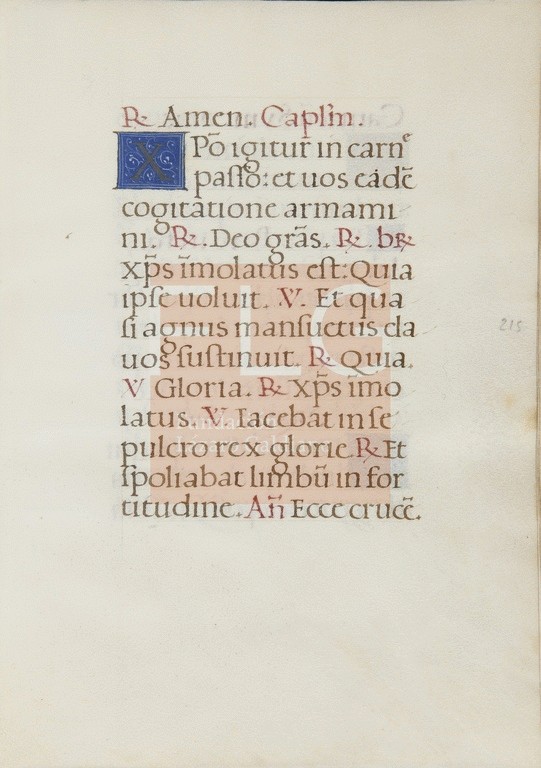 ℟ Amen. Caplm̄.
XPō igitur in carn̄ᵉ
paſſo: et uos eādē
cogitatione armami
ni. ℟. Deo grās. ℟. bŕ
xp̄s im̄olatus est: Quia
ipſe uoluit. V. Et qua
ſi agnus manſuetus cla
uos ſuſtinuit. ℟ Quia.
V Gloria. ℟ Xp̄s im̄o
latus. V. Iacebat in ſe
pulcro rex glorie. ℟ Et
ſpoliabat limbū in for
titudine. An̄ Ecce crucē.
215
FLG
Fundación
Lázaro Galdiano